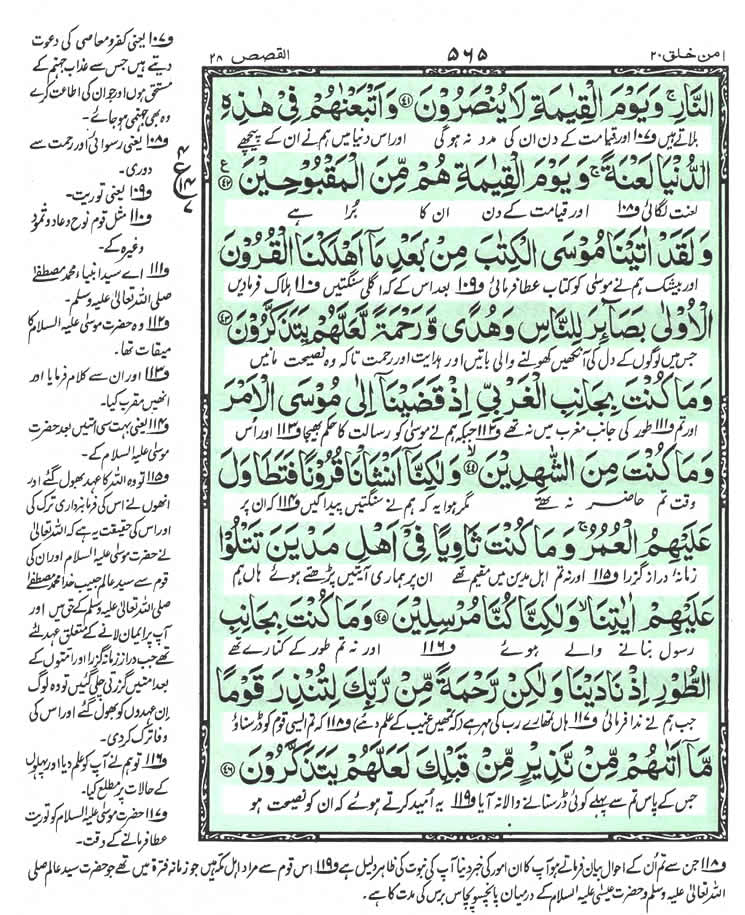 امن خلق ۲۰
۵۶۵
القصص ۲۸
النَّارِ ۚ وَ یَوْمَ الْقِیٰمَةِ لَا یُنْصَرُوْنَ ﴿۴۱﴾ وَ اَتْبَعْنٰهُمْ فِیْ هٰذِهِ
بلاتے ہیں و۱۰۷ اور قیامت کے دن ان کی مدد نہ ہوگی اور اس دنیا میں ہم نے ان کے پیچھے
الدُّنْیَا لَعْنَةً ۚ وَ یَوْمَ الْقِیٰمَةِ هُمْ مِّنَ الْمَقْبُوْحِیْنَ ﴿۴۲﴾ ع
لعنت لگائی و۱۰۸ اور قیامت کے دن ان کا بُرا ہے
وَ لَقَدْ اٰتَیْنَا مُوْسَى الْكِتٰبَ مِنْۢ بَعْدِ مَاۤ اَهْلَكْنَا الْقُرُوْنَ
اور بیشک ہم نے موسیٰ کو کتاب عطا فرمائی و۱۰۹ بعد اس کے کہ اگلی سنگتیں و۱۱۰ ہلاک فرمادیں
الْاُوْلٰى بَصَآىِٕرَ لِلنَّاسِ وَ هُدًى وَّ رَحْمَةً لَّعَلَّهُمْ یَتَذَكَّرُوْنَ ﴿۴۳﴾
جس میں لوگوں کے دل کی آنکھیں کھولنے والی باتیں اور ہدایت اور رحمت تاکہ وہ نصیحت مانیں
وَ مَا كُنْتَ بِجَانِبِ الْغَرْبِیِّ اِذْ قَضَیْنَاۤ اِلٰى مُوْسَى الْاَمْرَ
اور تم و۱۱۱ طور کی جانب مغرب میں نہ تھے و۱۱۲ جبکہ ہم نے موسیٰ کو رسالت کا حکم بھیجا و۱۱۳ اور اُس
وَ مَا كُنْتَ مِنَ الشّٰهِدِیْنَ ﴿۴۴﴾ۙ وَ لٰكِنَّاۤ اَنْشَاْنَا قُرُوْنًا فَتَطَاوَلَ
وقت تم حاضر نہ تھے مگر ہوا یہ کہ ہم نے سنگتیں پیدا کیں و۱۱۴ کہ ان پر
عَلَیْهِمُ الْعُمُرُ ۚ وَ مَا كُنْتَ ثَاوِیًا فِیْۤ اَهْلِ مَدْیَنَ تَتْلُوْا
زمانہ دراز گزرا و۱۱۵ اور نہ تم اہل مدین میں مقیم تھے ان پر ہماری آیتیں پڑھتے ہوئے ہاں ہم
عَلَیْهِمْ اٰیٰتِنَا ۙ وَ لٰكِنَّا كُنَّا مُرْسِلِیْنَ ﴿۴۵﴾ وَ مَا كُنْتَ بِجَانِبِ
رسول بنانے والے ہوئے و۱۱۶ اور نہ تم طور کے کنارے تھے
الطُّوْرِ اِذْ نَادَیْنَا وَ لٰكِنْ رَّحْمَةً مِّنْ رَّبِّكَ لِتُنْذِرَ قَوْمًا
جب ہم نے ندا فرمائی و۱۱۷ ہاں تمھارے رب کی مہر ہے (کہ تمھیں غیب کے علم دئیے) و۱۱۸ کہ تم ایسی قوم کو ڈر سناؤ
مَّاۤ اَتٰىهُمْ مِّنْ نَّذِیْرٍ مِّنْ قَبْلِكَ لَعَلَّهُمْ یَتَذَكَّرُوْنَ ﴿۴۶﴾
جس کے پاس تم سے پہلے کوئی ڈر سنانے والا نہ آیا و۱۱۹ یہ اُمید کرتے ہوئے کہ ان کو نصیحت ہو
۴
ع
۱۴
۷
و۱۰۷ یعنی کفر و معاصی کی دعوت
دیتے ہیں جس سے عذاب جہنم کے
مستحق ہوں اور جو ان کی اطاعت کرے
وہ بھی جہنمی ہو جائے۔
و۱۰۸ یعنی رسوائی اور رحمت سے
دوری۔
و۱۰۹ یعنی توریت۔
و۱۱۰ مثل قوم نوح و عاد و ثمود
وغیرہ کے۔
و۱۱۱ اے سید انبیاء محمد مصطفےٰ
صلی اللہ تعالیٰ علیہ وسلم۔
و۱۱۲ وہ حضرت موسیٰ علیہ السلام کا
میقات تھا۔
و۱۱۳ اور ان سے کلام فرمایا اور
انھیں مقرب کیا۔
و۱۱۴ یعنی بہت سی امتیں بعد حضرت
موسیٰ علیہ السلام کے۔
و۱۱۵ تو وہ اللہ کا عہد بھول گئے اور
انھوں نے اس کی فرمانبرداری ترک کی
اور اس کی حقیقت یہ ہے کہ اللہ تعالیٰ
نے حضرت موسیٰ علیہ السلام اور ان کی
قوم سے سید عالم حبیب خدا محمد مصطفےٰ
صلی اللہ تعالیٰ علیہ وسلم کے حق میں اور
آپ پر ایمان لانے کے متعلق عہد لئے
تھے جب دراز زمانہ گزرا اور امتوں کے
بعد امتیں گزرتی چلی گئیں تو وہ لوگ
ان عہدوں کو بھول گئے اور اس کی
وفا ترک کر دی۔
و۱۱۶ تو ہم نے آپ کو علم دیا اور پہلوں
کے حالات پر مطلع کیا۔
و۱۱۷ حضرت موسیٰ علیہ السلام کو توریت
عطا فرمانے کے وقت۔
و۱۱۸ جن سے تم اُن کے احوال بیان فرماتے ہو آپ کا ان امور کی خبر دینا آپ کی نبوت کی ظاہر دلیل ہے و۱۱۹ اس قوم سے مراد اہل مکہ ہیں جو زمانہ فترۃ میں تھے جو حضرت سید عالم صلی
اللہ تعالیٰ علیہ وسلم و حضرت عیسیٰ علیہ السلام کے درمیان پانچسو پچاس برس کی مدت کا ہے۔